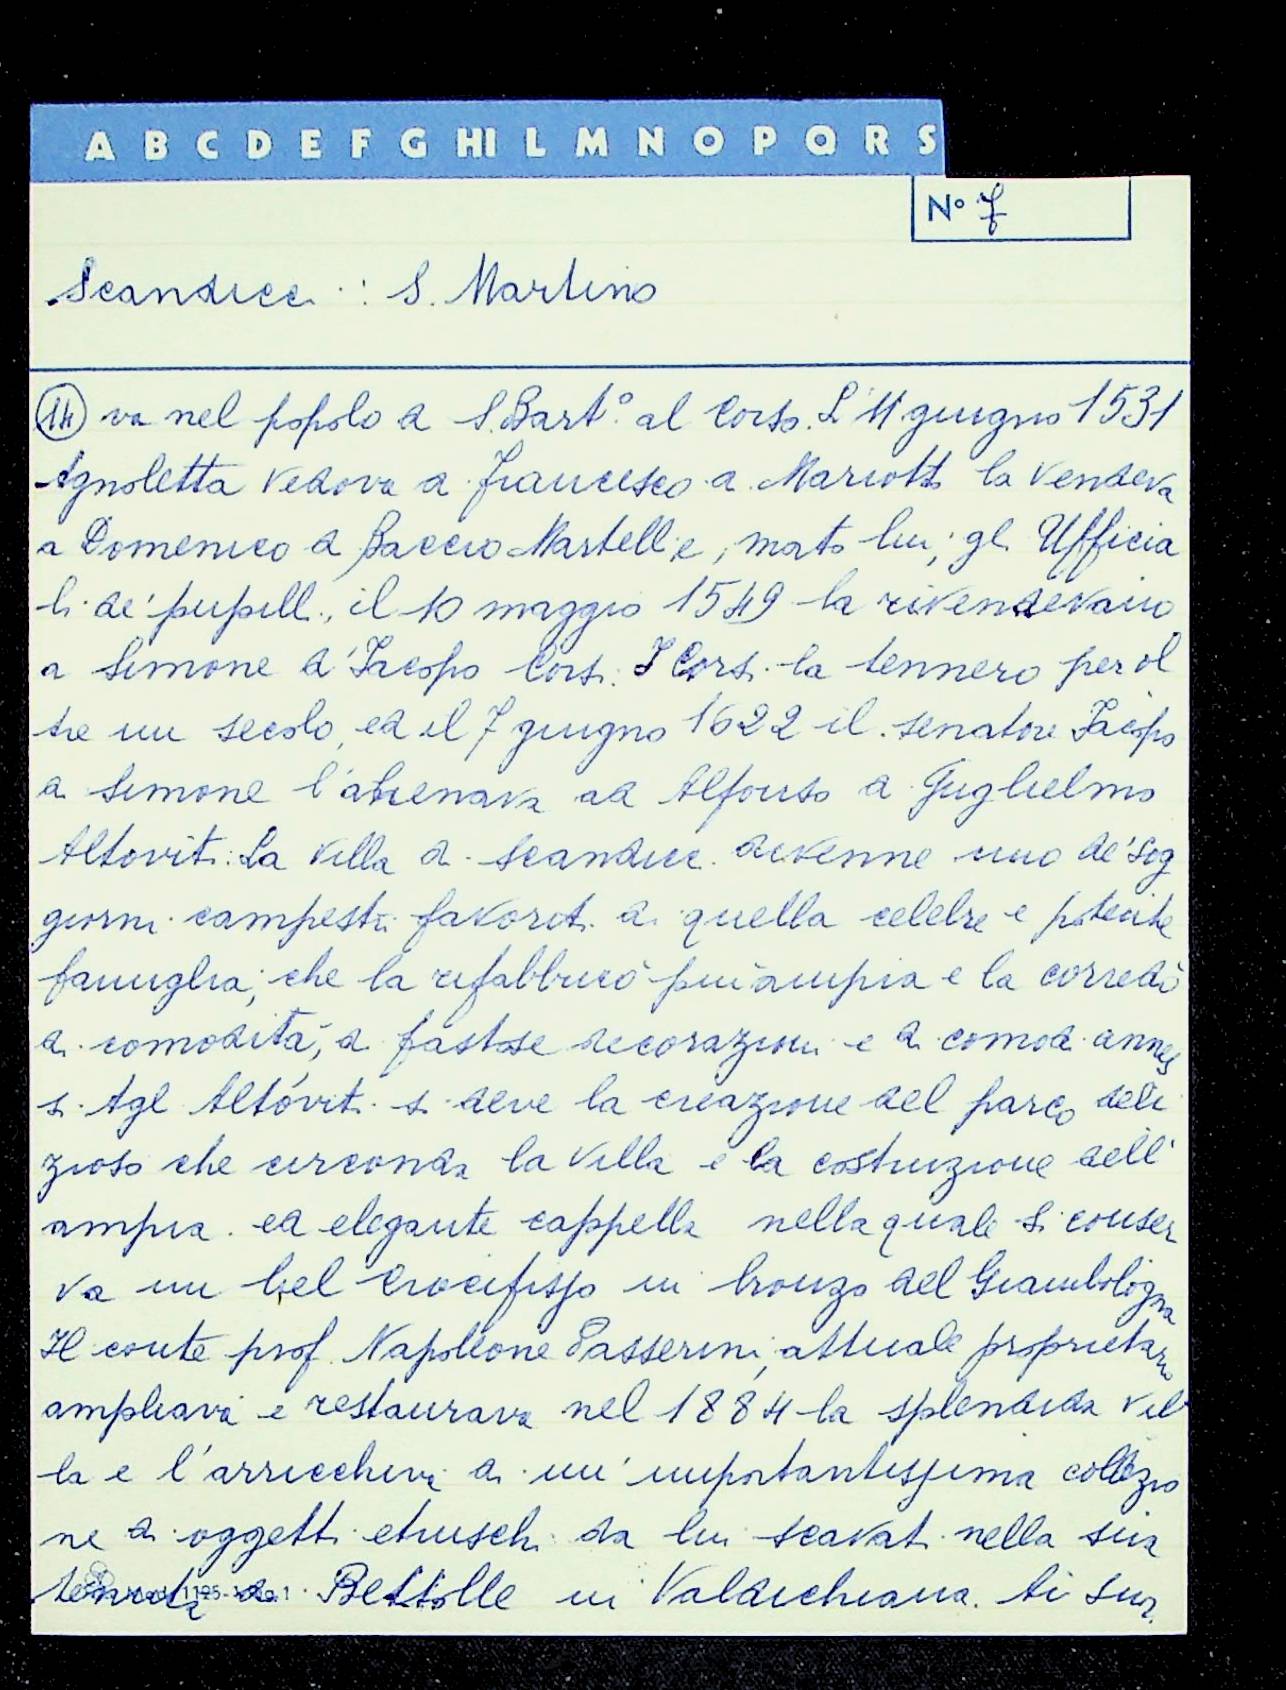 A B C D E F G HI L M N O P Q R S
N° 7
Scandicci : S. Martino
(14) va nel popolo di S. Bart° al Corso. L'11 giugno 1531
Agnoletta vedova di Francesco di Mariotti la vendeva
a Domenico di Baccio Martelli e, morto lui, gli Ufficia
li de' pupilli, il 10 maggio 1549 la rivendevano
a Simone d'Jacopo Corsi. I Corsi la tennero per ol
tre un secolo, ed il 7 giugno 1622 il senatore Jacopo
di Simone l'alienava ad Alfonso di Guglielmo
Altoviti. La villa di Scandicci divenne uno de' sog
giorni campestri favoriti di quella celebre e potente
famiglia, che la rifabbricò più ampia e la corredò
di comodità, di fastose decorazioni e di comodi annes
si. Agli Altoviti si deve la creazione del parco deli
zioso che circonda la villa e la costruzione dell'
ampia ed elegante cappella nella quale si conser
va un bel Crocifisso in bronzo del Giambologna
Il conte prof. Napoleone Passerini, attuale proprietario
ampliava e restaurava nel 1884 la splendida vil
la e l'arricchiva di un' importantissima collezio
ne di oggetti etruschi da lui scavati nella sua
tenuta di Bettolle in Valdichiana. Ai suoi